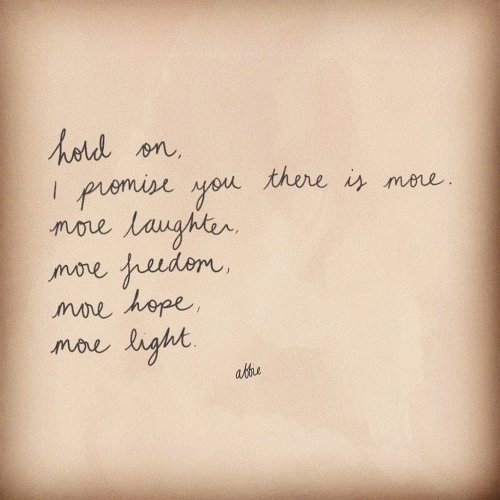 hold on,
I promise you there is more.
more laughter,
more freedom,
more hope,
more light.
abbie